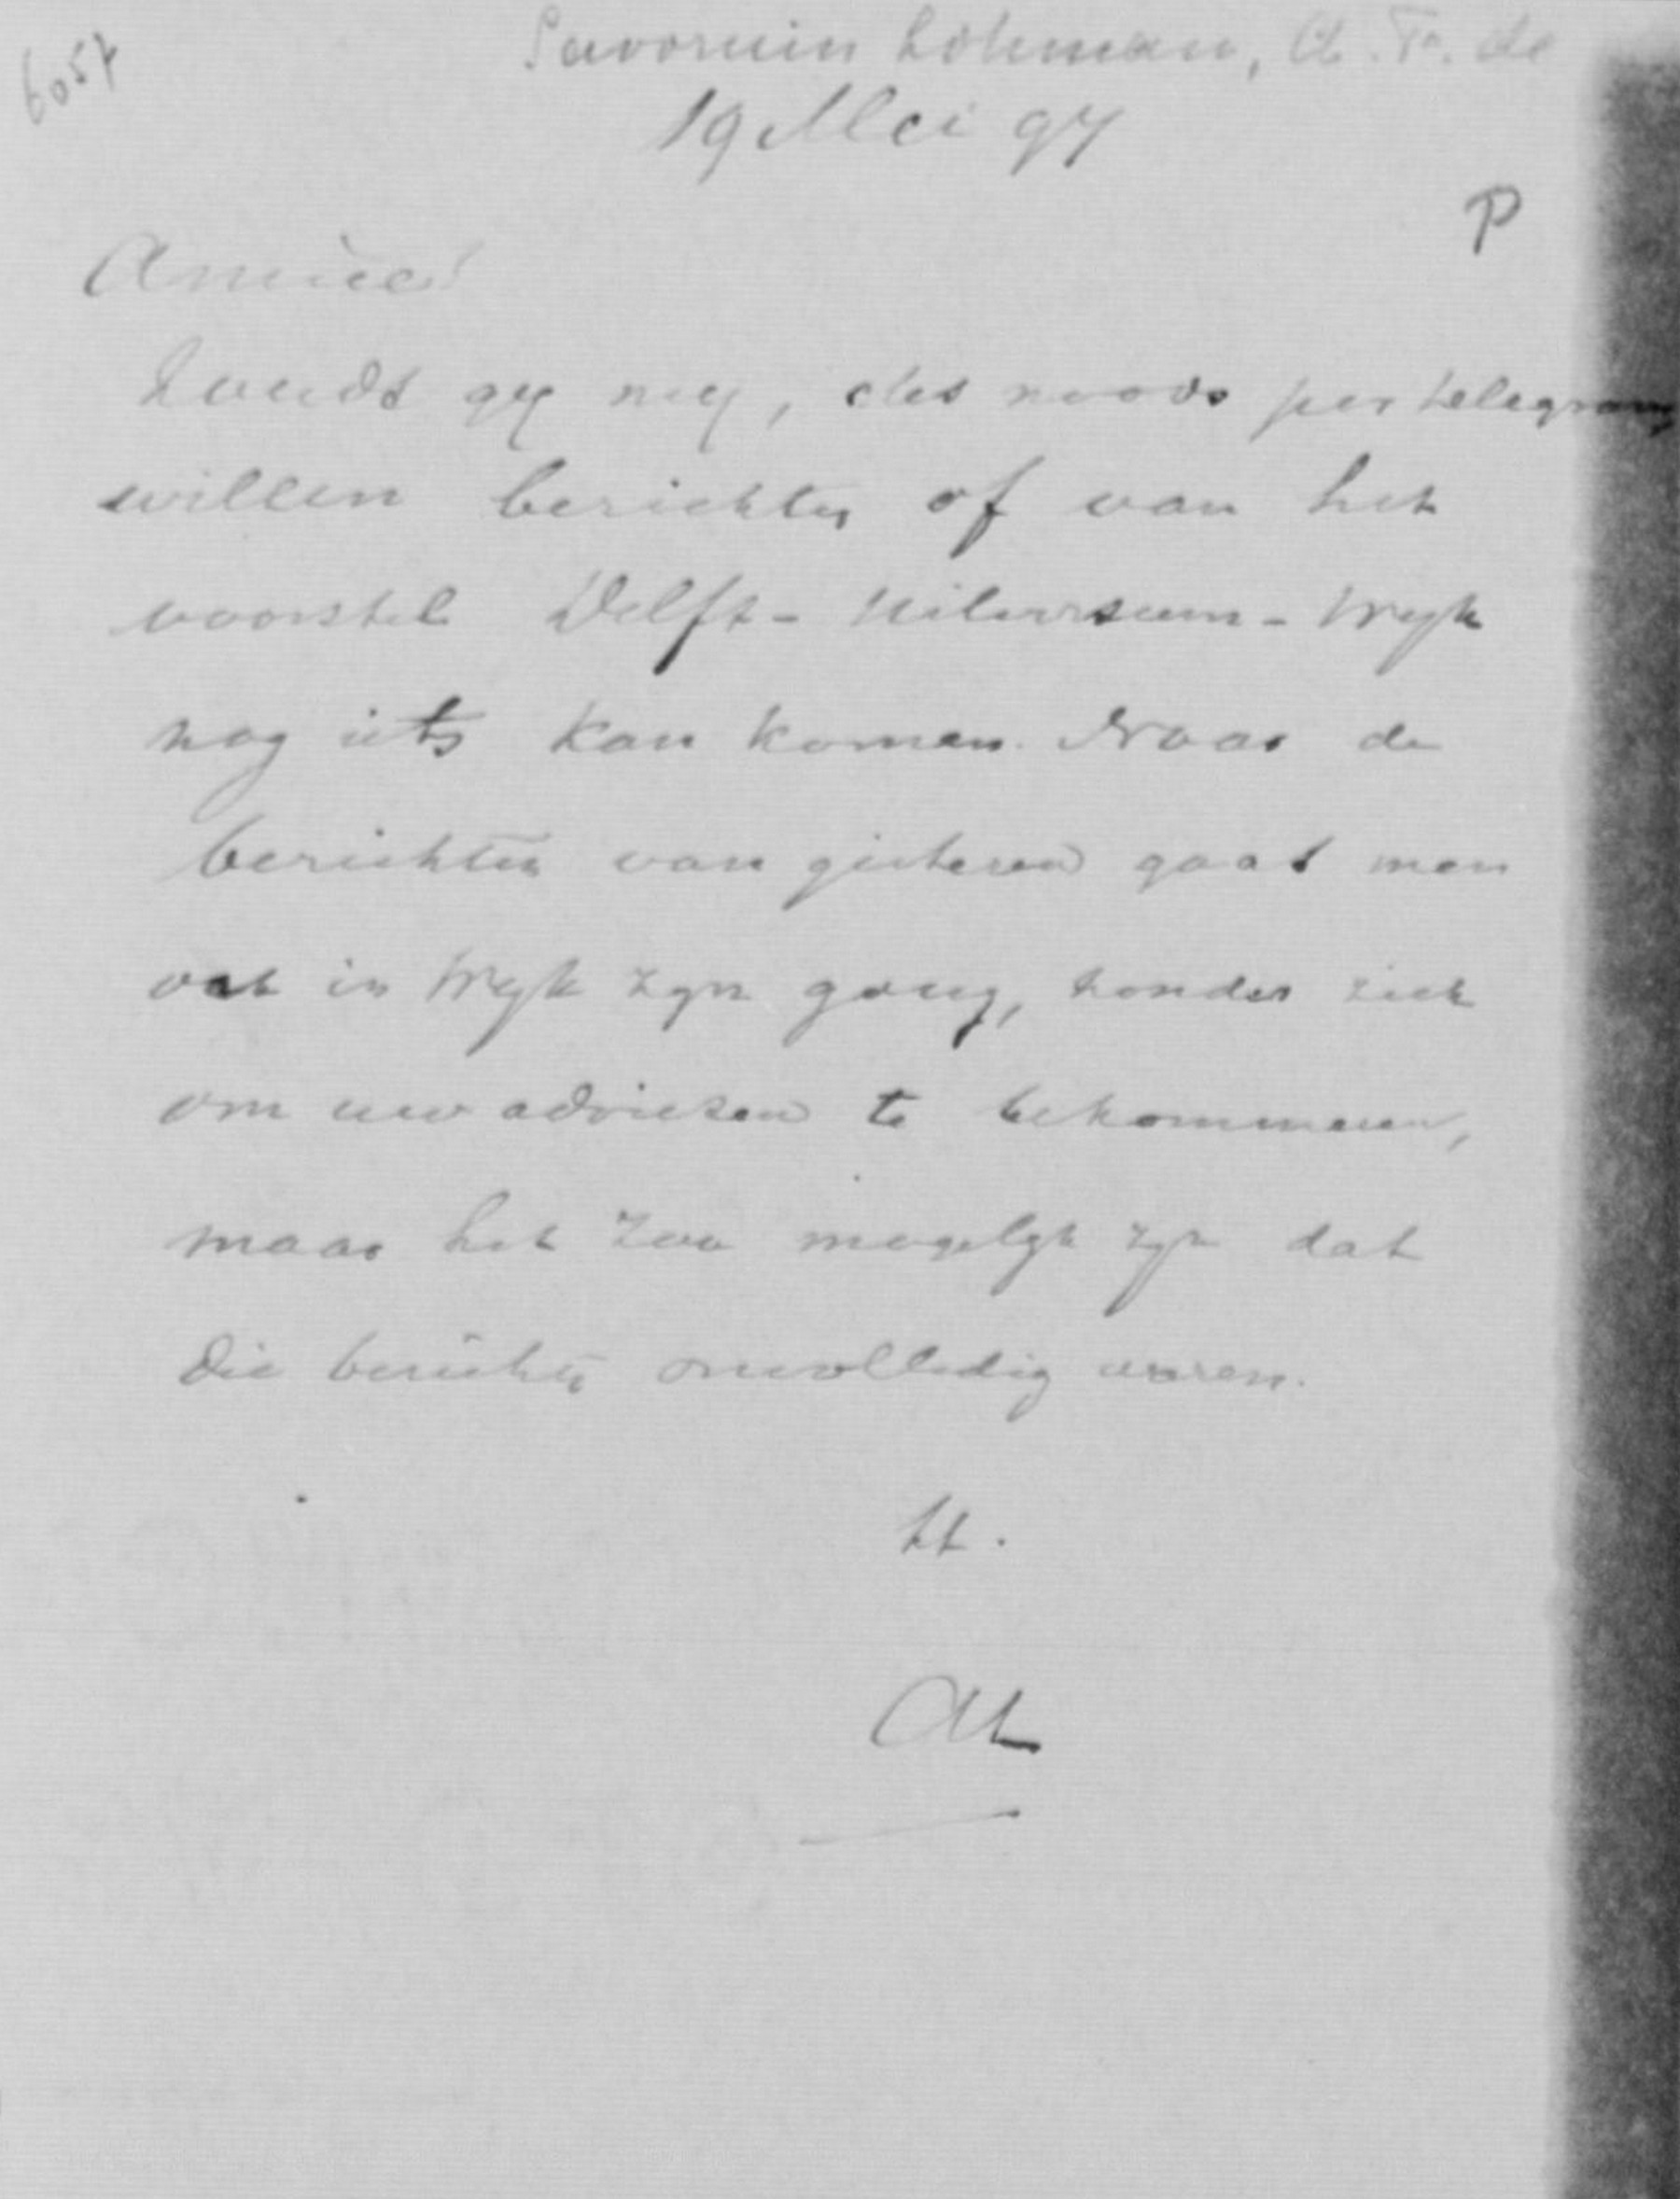 6057
Savornin Lohman, A. F. de
19 Mei 97
P
Amice!
Zoudt gij mij, des noods per telegram,
willen berichten of van het
voorstel Delft - Hilversum - Wijk
nog iets kan komen. Naar de
berichten van gisteren gaat men
ook in Wijk zijn gang, zonder zich
om uw adviezen te bekommeren,
maar het zou mogelijk zijn dat
die berichten onvolledig waren.
tt.
AL